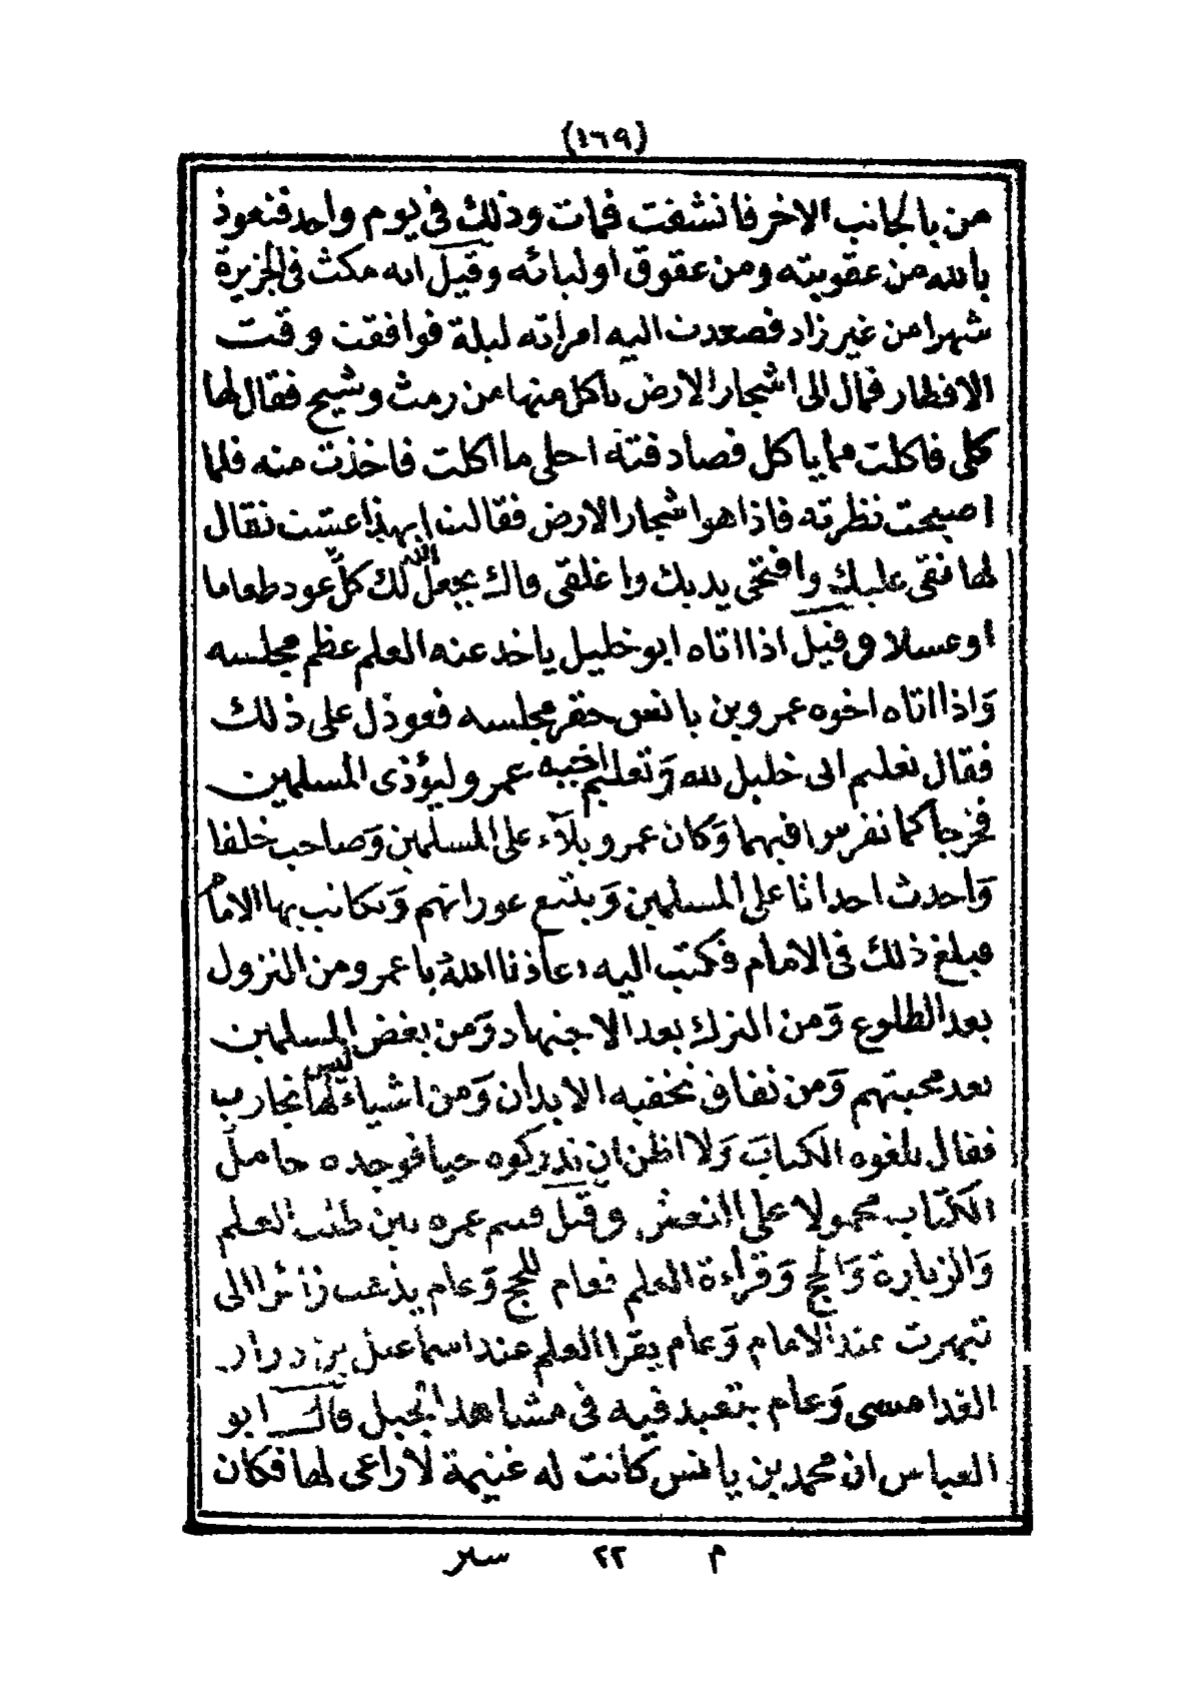 (١٦٩)
من بالجانب الاخر فانشفت فمات وذلك في يوم واحد فنعوذ
بالله من عقوبته ومن عقوق اوليائه وقيل انه مكث في الجزيرة
شهرا من غير زاد فصعدت اليه امرأته ليلة فوافقت وقت
الافطار فمال الى اشجار الارض ياكل منها من رمث وشيح فقال لها
كلى فاكلت مما ياكل فصادفته احلى ما اكلت فاخذت منه فلما
اصبحت نظرته فاذا هو اشجار الارض فقالت ابهذا عشت فقال
لها نقى عليك وافتحى يديك واغلقى فاك يجعل الله لك كل عود طعاما
او عسلا وقيل اذا اتاه ابو خليل ياخذ عنه العلم عظم مجلسه
وَاذا اتاه اخوه عمرو بن يانس حقر مجلسه فعوذل على ذلك
فقال تعليم ابى خليل لله وَتعليم اخيه عمرو ليؤذى المسلمين
فخرجا كما تفرس فيهما وَكان عمرو بلآء على المسلمين وَصاحب خلفا
وَاحدث احداثا على المسلمين وَيتتبع عوراتهم وَيكاتب بها الامام
فبلغ ذلك فى الامام فكتب اليه اعاذنا الله يا عمرو من النزول
بعد الطلوع وَمن الترك بعد الاجتهاد وَمن بغض المسلمين
بعد محبتهم وَمن نفاق تخفيه الابدان وَمن اشياء ليس لها تجارب
فقال بلغوه الكتاب وَلا اظن ان تدركوه حيا فوجده حامل
الكتاب محمولا على النعش وقيل قسم عمره بين طلب العلم
وَالزيارة وَالحج وَقرأءة العلم فعام للحج وَعام يذهب زائرا الى
تيهرت عند الامام وَعام يقرا العلم عند اسماعيل بن درار
الغدامسى وَعام يتعبد فيه فى مشاهد الجبل قال ابو
العباس ان محمد بن يانس كانت له غنيمة لا راعى لها فكان
م ٢٢ سير